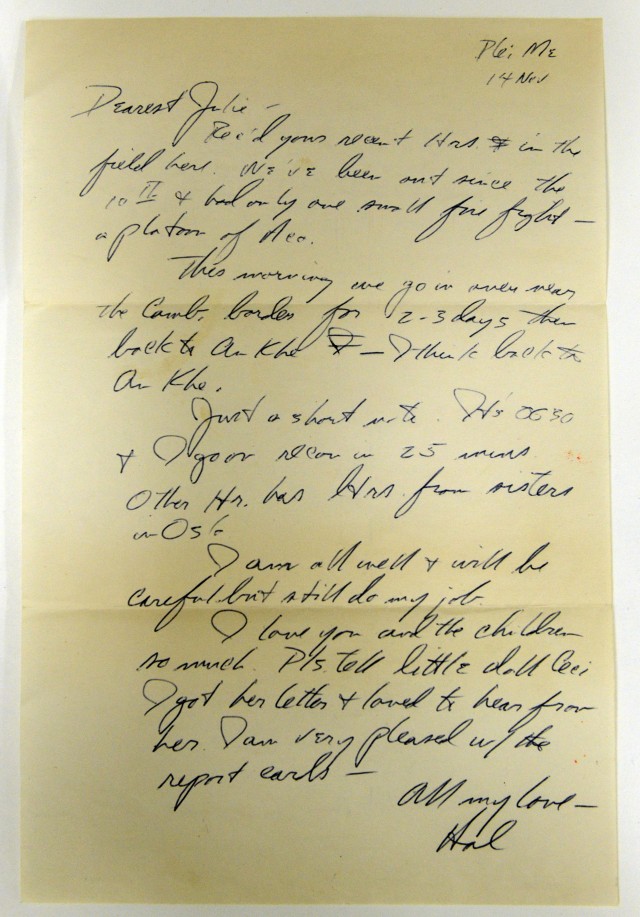 Plei Me
14 Nov
Dearest Julie -
Rec'd your recent ltrs. in the
field here. We've been out since the
10th & had only one small fire fight -
a platoon of
This morning we go in over near
the Camb. border for 2-3 days then
back to An Khe - I think back to
An Khe.
Just a short note. It's 0630
& I go on recon in 25 mins.
Other ltr. has ltrs. from sisters
in
I am all well & will be
careful but still do my job.
I love you and the children
so much. Pls. tell little doll Ceci
I got her letter & loved to hear from
her. I am very pleased w/ the
report cards -
All my love -
Hal